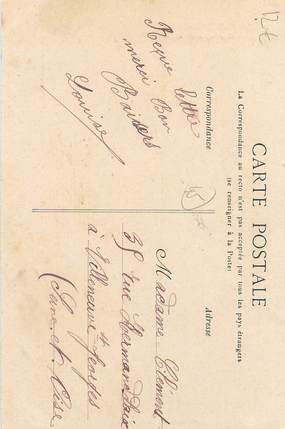 12 €
CARTE POSTALE
La Correspondance au recto n'est pas acceptée par tous les pays étrangers
(se renseigner à la Poste)
Correspondance
Adresse
Reçu lettre
merci Bon
Baisers
Louise
Madame Clément
35 rue Hermann
à Villeneuve St Georges
(Seine et Oise